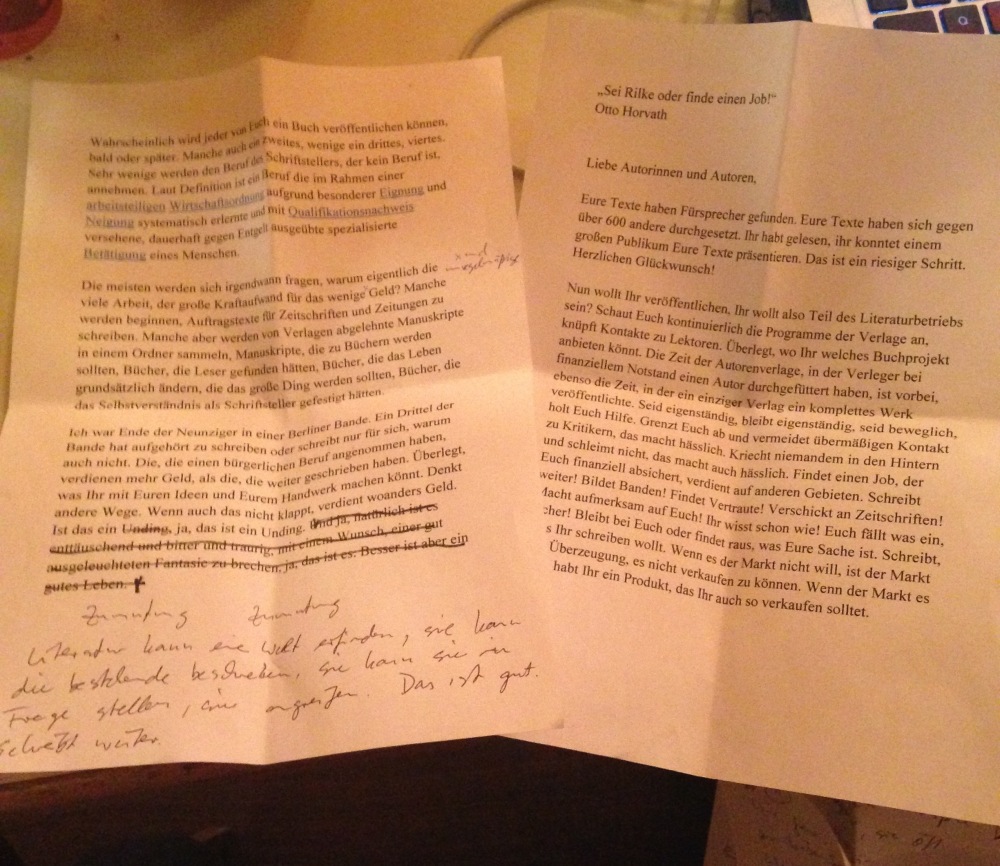 „Sei Rilke oder finde einen Job!“
Otto Horvath
Liebe Autorinnen und Autoren,
Eure Texte haben Fürsprecher gefunden. Eure Texte haben sich gegen
über 600 andere durchgesetzt. Ihr habt gelesen, ihr konntet einem
großen Publikum Eure Texte präsentieren. Das ist ein riesiger Schritt.
Herzlichen Glückwunsch!
Nun wollt Ihr veröffentlichen, Ihr wollt also Teil des Literaturbetriebs
sein? Schaut Euch kontinuierlich die Programme der Verlage an,
knüpft Kontakte zu Lektoren. Überlegt, wo Ihr welches Buchprojekt
anbieten könnt. Die Zeit der Autorenverlage, in der Verleger bei
finanziellem Notstand einen Autor durchgefüttert haben, ist vorbei,
ebenso die Zeit, in der ein einziger Verlag ein komplettes Werk
veröffentlichte. Seid eigenständig, bleibt eigenständig, seid beweglich,
holt Euch Hilfe. Grenzt Euch ab und vermeidet übermäßigen Kontakt
zu Kritikern, das macht hässlich. Kriecht niemandem in den Hintern
und schleimt nicht, das macht auch hässlich. Findet einen Job, der
Euch finanziell absichert, verdient auf anderen Gebieten. Schreibt
weiter! Bildet Banden! Findet Vertraute! Verschickt an Zeitschriften!
Macht aufmerksam auf Euch! Ihr wisst schon wie! Euch fällt was ein,
cher! Bleibt bei Euch oder findet raus, was Eure Sache ist. Schreibt,
s Ihr schreiben wollt. Wenn es der Markt nicht will, ist der Markt
Überzeugung, es nicht verkaufen zu können. Wenn der Markt es
habt Ihr ein Produkt, das Ihr auch so verkaufen solltet.
Wahrscheinlich wird jeder von Euch ein Buch veröffentlichen können,
bald oder später. Manche auch ein zweites, wenige ein drittes, viertes.
Sehr wenige werden den Beruf des Schriftstellers, der kein Beruf ist,
annehmen. Laut Definition ist ein Beruf die im Rahmen einer
arbeitsteiligen Wirtschaftsordnung aufgrund besonderer Eignung und
Neigung systematisch erlernte und mit Qualifikationsnachweis
versehene, dauerhaft gegen Entgelt ausgeübte spezialisierte
Betätigung eines Menschen.
Die meisten werden sich irgendwann fragen, warum eigentlich die
viele Arbeit, der große Kraftaufwand für das wenige Geld? Manche
werden beginnen, Auftragstexte für Zeitschriften und Zeitungen zu
schreiben. Manche aber werden von Verlagen abgelehnte Manuskripte
in einem Ordner sammeln, Manuskripte, die zu Büchern werden
sollten, Bücher, die Leser gefunden hätten, Bücher, die das Leben
grundsätzlich ändern, die das große Ding werden sollten, Bücher, die
das Selbstverständnis als Schriftsteller gefestigt hätten.
Ich war Ende der Neunziger in einer Berliner Bande. Ein Drittel der
Bande hat aufgehört zu schreiben oder schreibt nur für sich, warum
auch nicht. Die, die einen bürgerlichen Beruf angenommen haben,
verdienen mehr Geld, als die, die weiter geschrieben haben. Überlegt,
was Ihr mit Euren Ideen und Eurem Handwerk machen könnt. Denkt
andere Wege. Wenn auch das nicht klappt, verdient woanders Geld.
Ist das ein Unding, ja, das ist ein Unding. Und ja, natürlich ist es
enttäuschend und bitter und traurig, mit einem Wunsch, einer gut
ausgeleuchteten Fantasie zu brechen, ja, das ist es. Besser ist aber ein
gutes Leben.
Zumutung Zumutung
Literatur kann eine Welt erfinden, sie kann
die bestehende beschreiben, sie kann sie in
Frage stellen, sie angreifen. Das ist gut.
Schreibt weiter.